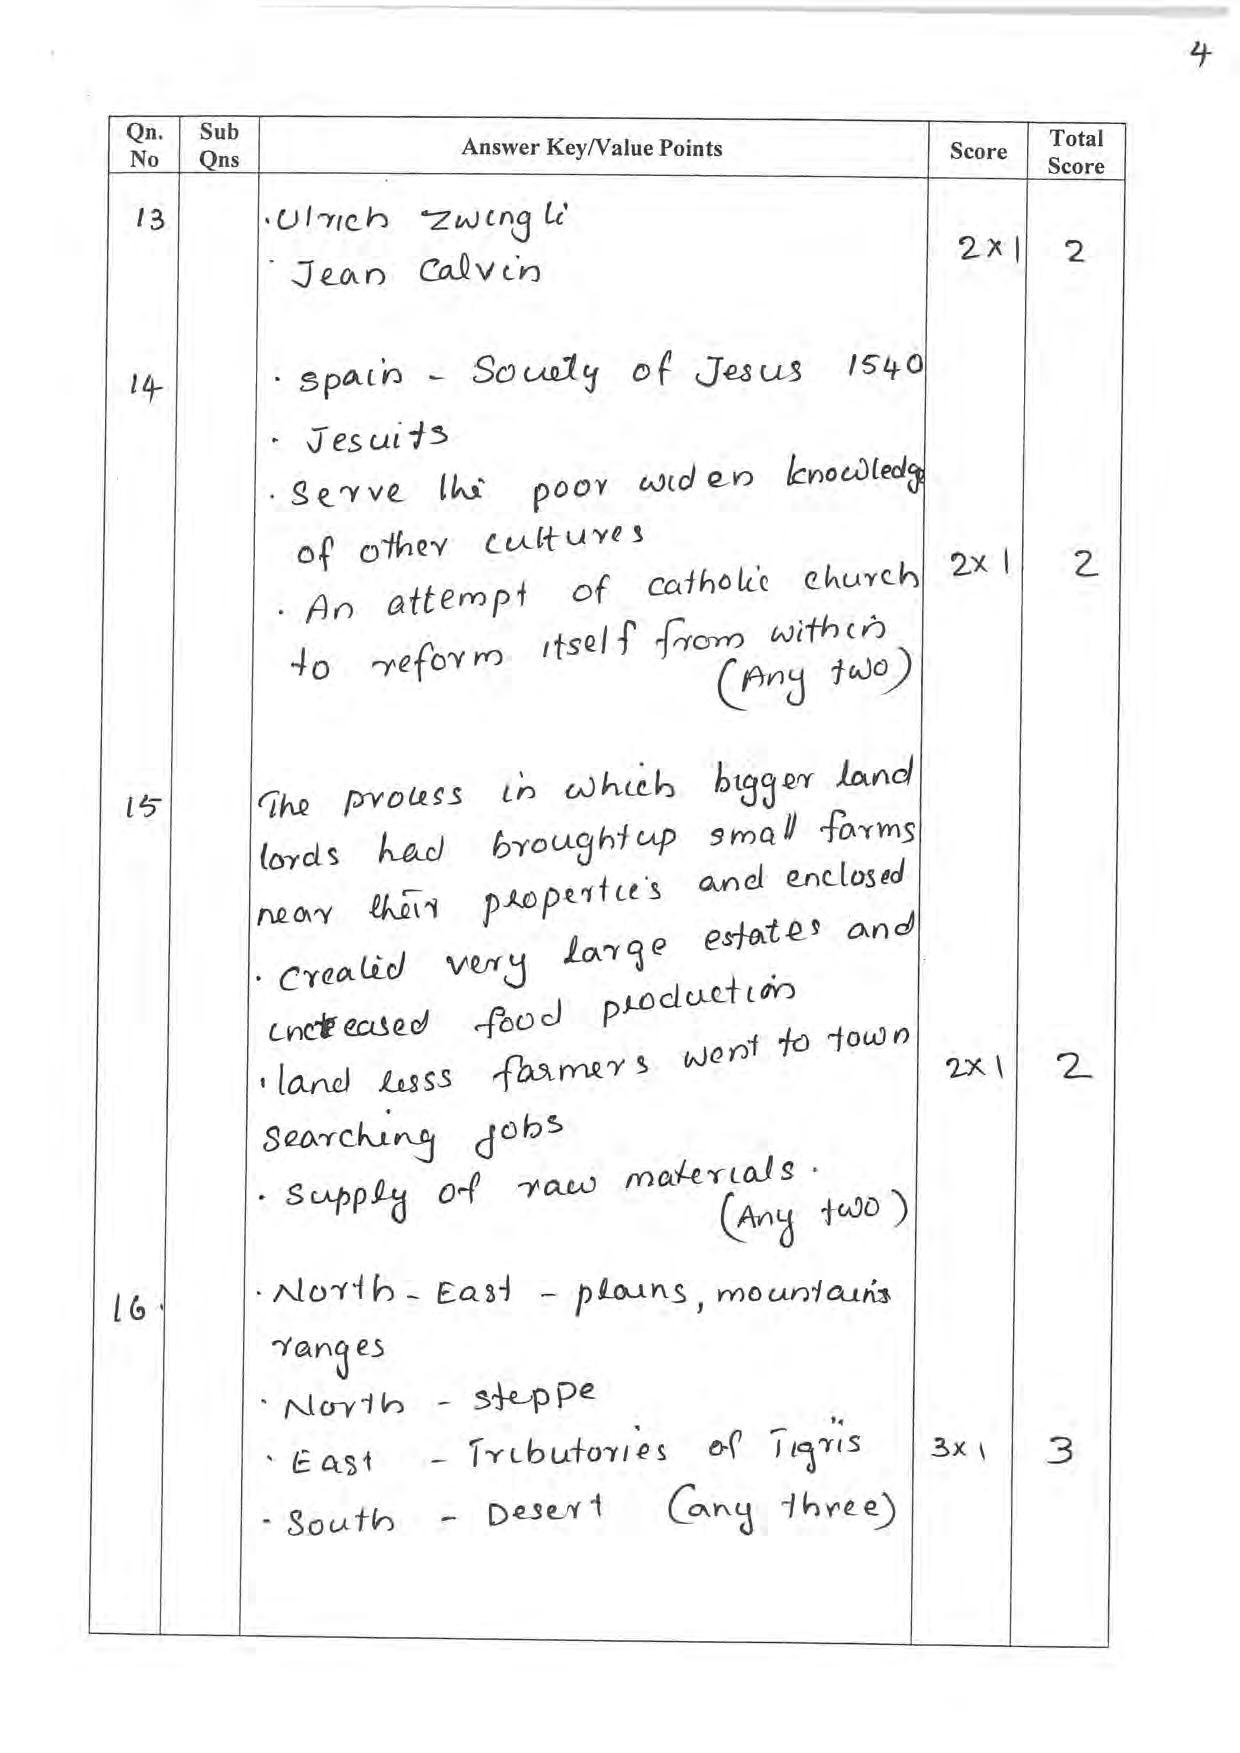 4
Qn. No Sub Qns Answer Key/Value Points Score Total Score
13 · Ulrich Zwingli
· Jean Calvin 2 x 1 2
14 · Spain - Society of Jesus 1540
· Jesuits
· Serve the poor widen knowledge
of other cultures
· An attempt of catholic church 2 x 1 2
to reform itself from within
(Any two)
15 The process in which bigger land
lords had broughtup small farms
near their properties and enclosed
· Created very large estates and
increased food production
· land lesss farmers went to town 2 x 1 2
searching jobs
· Supply of raw materials.
(Any two)
16. · North - East - plains, mountains
ranges
· North - steppe
· East - Tributories of Tigris 3 x 1 3
- South - Desert (any three)